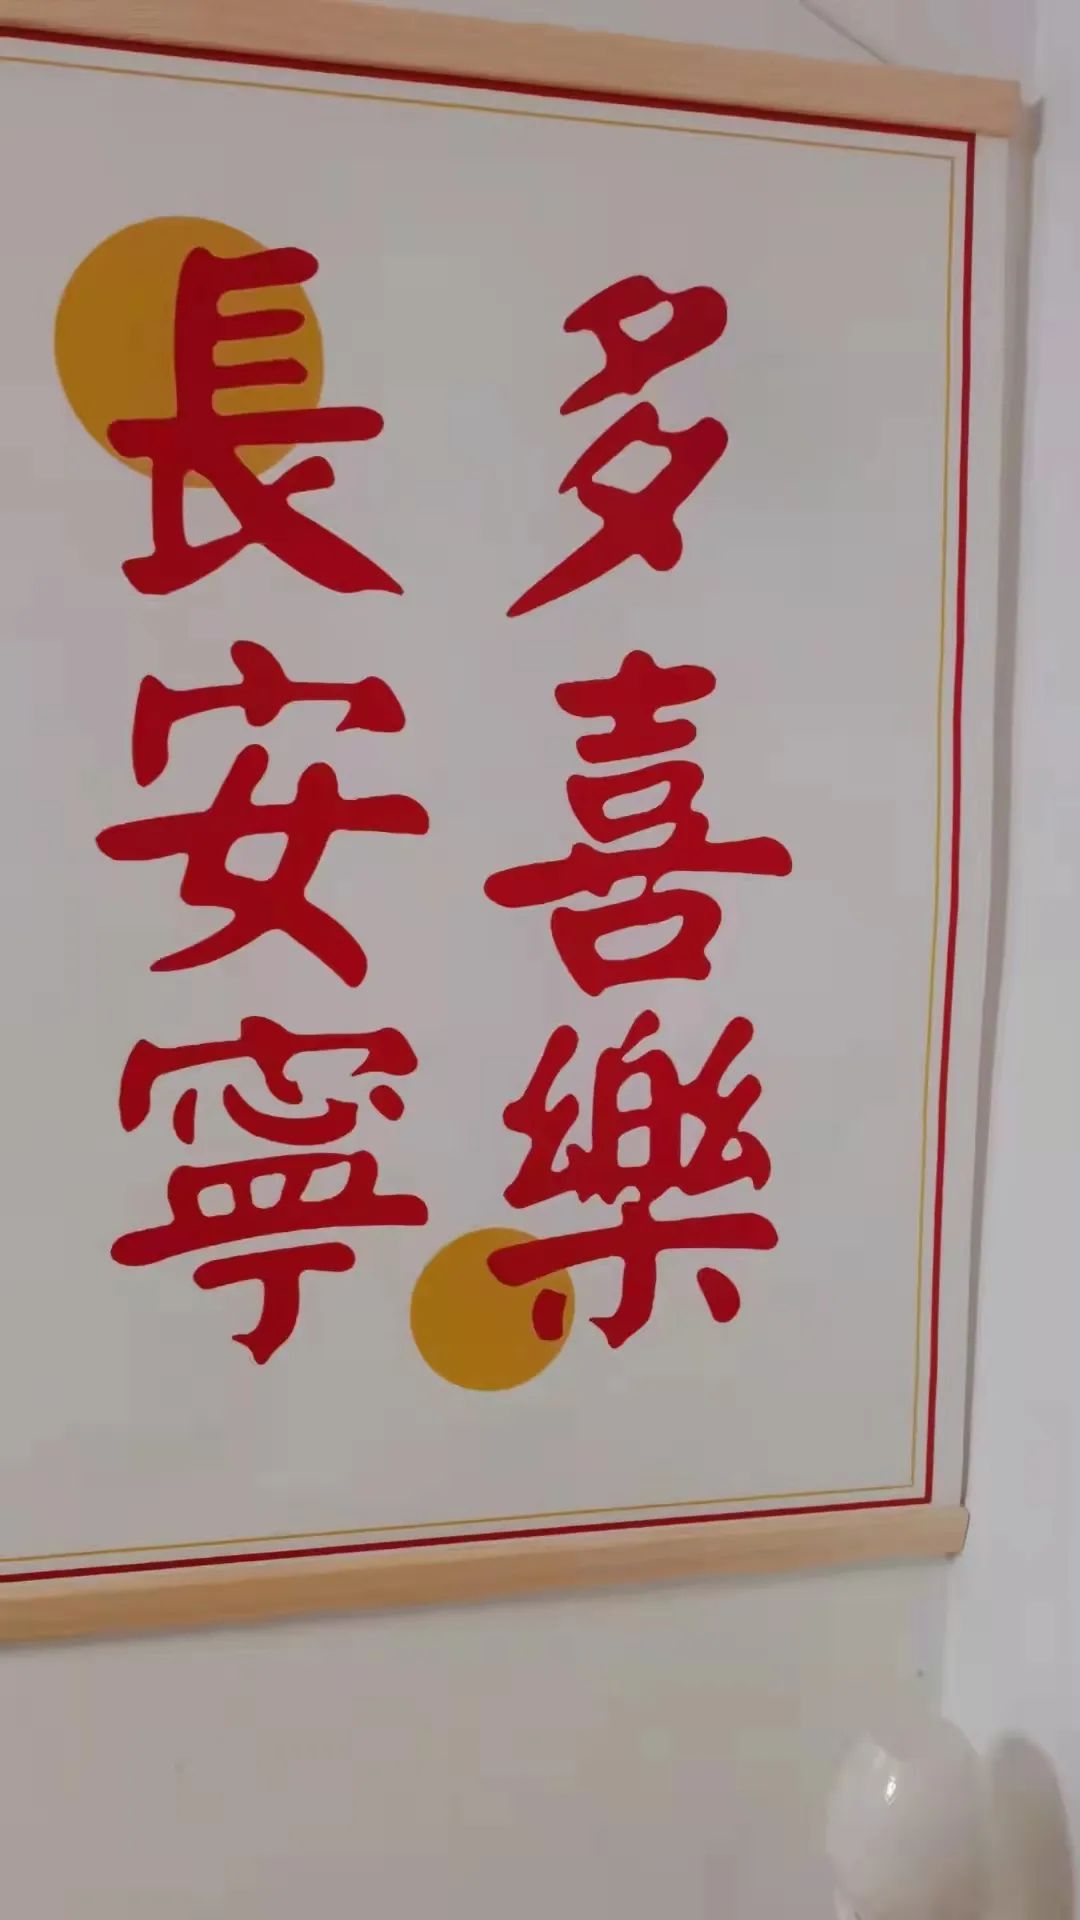 多喜樂
長安寧